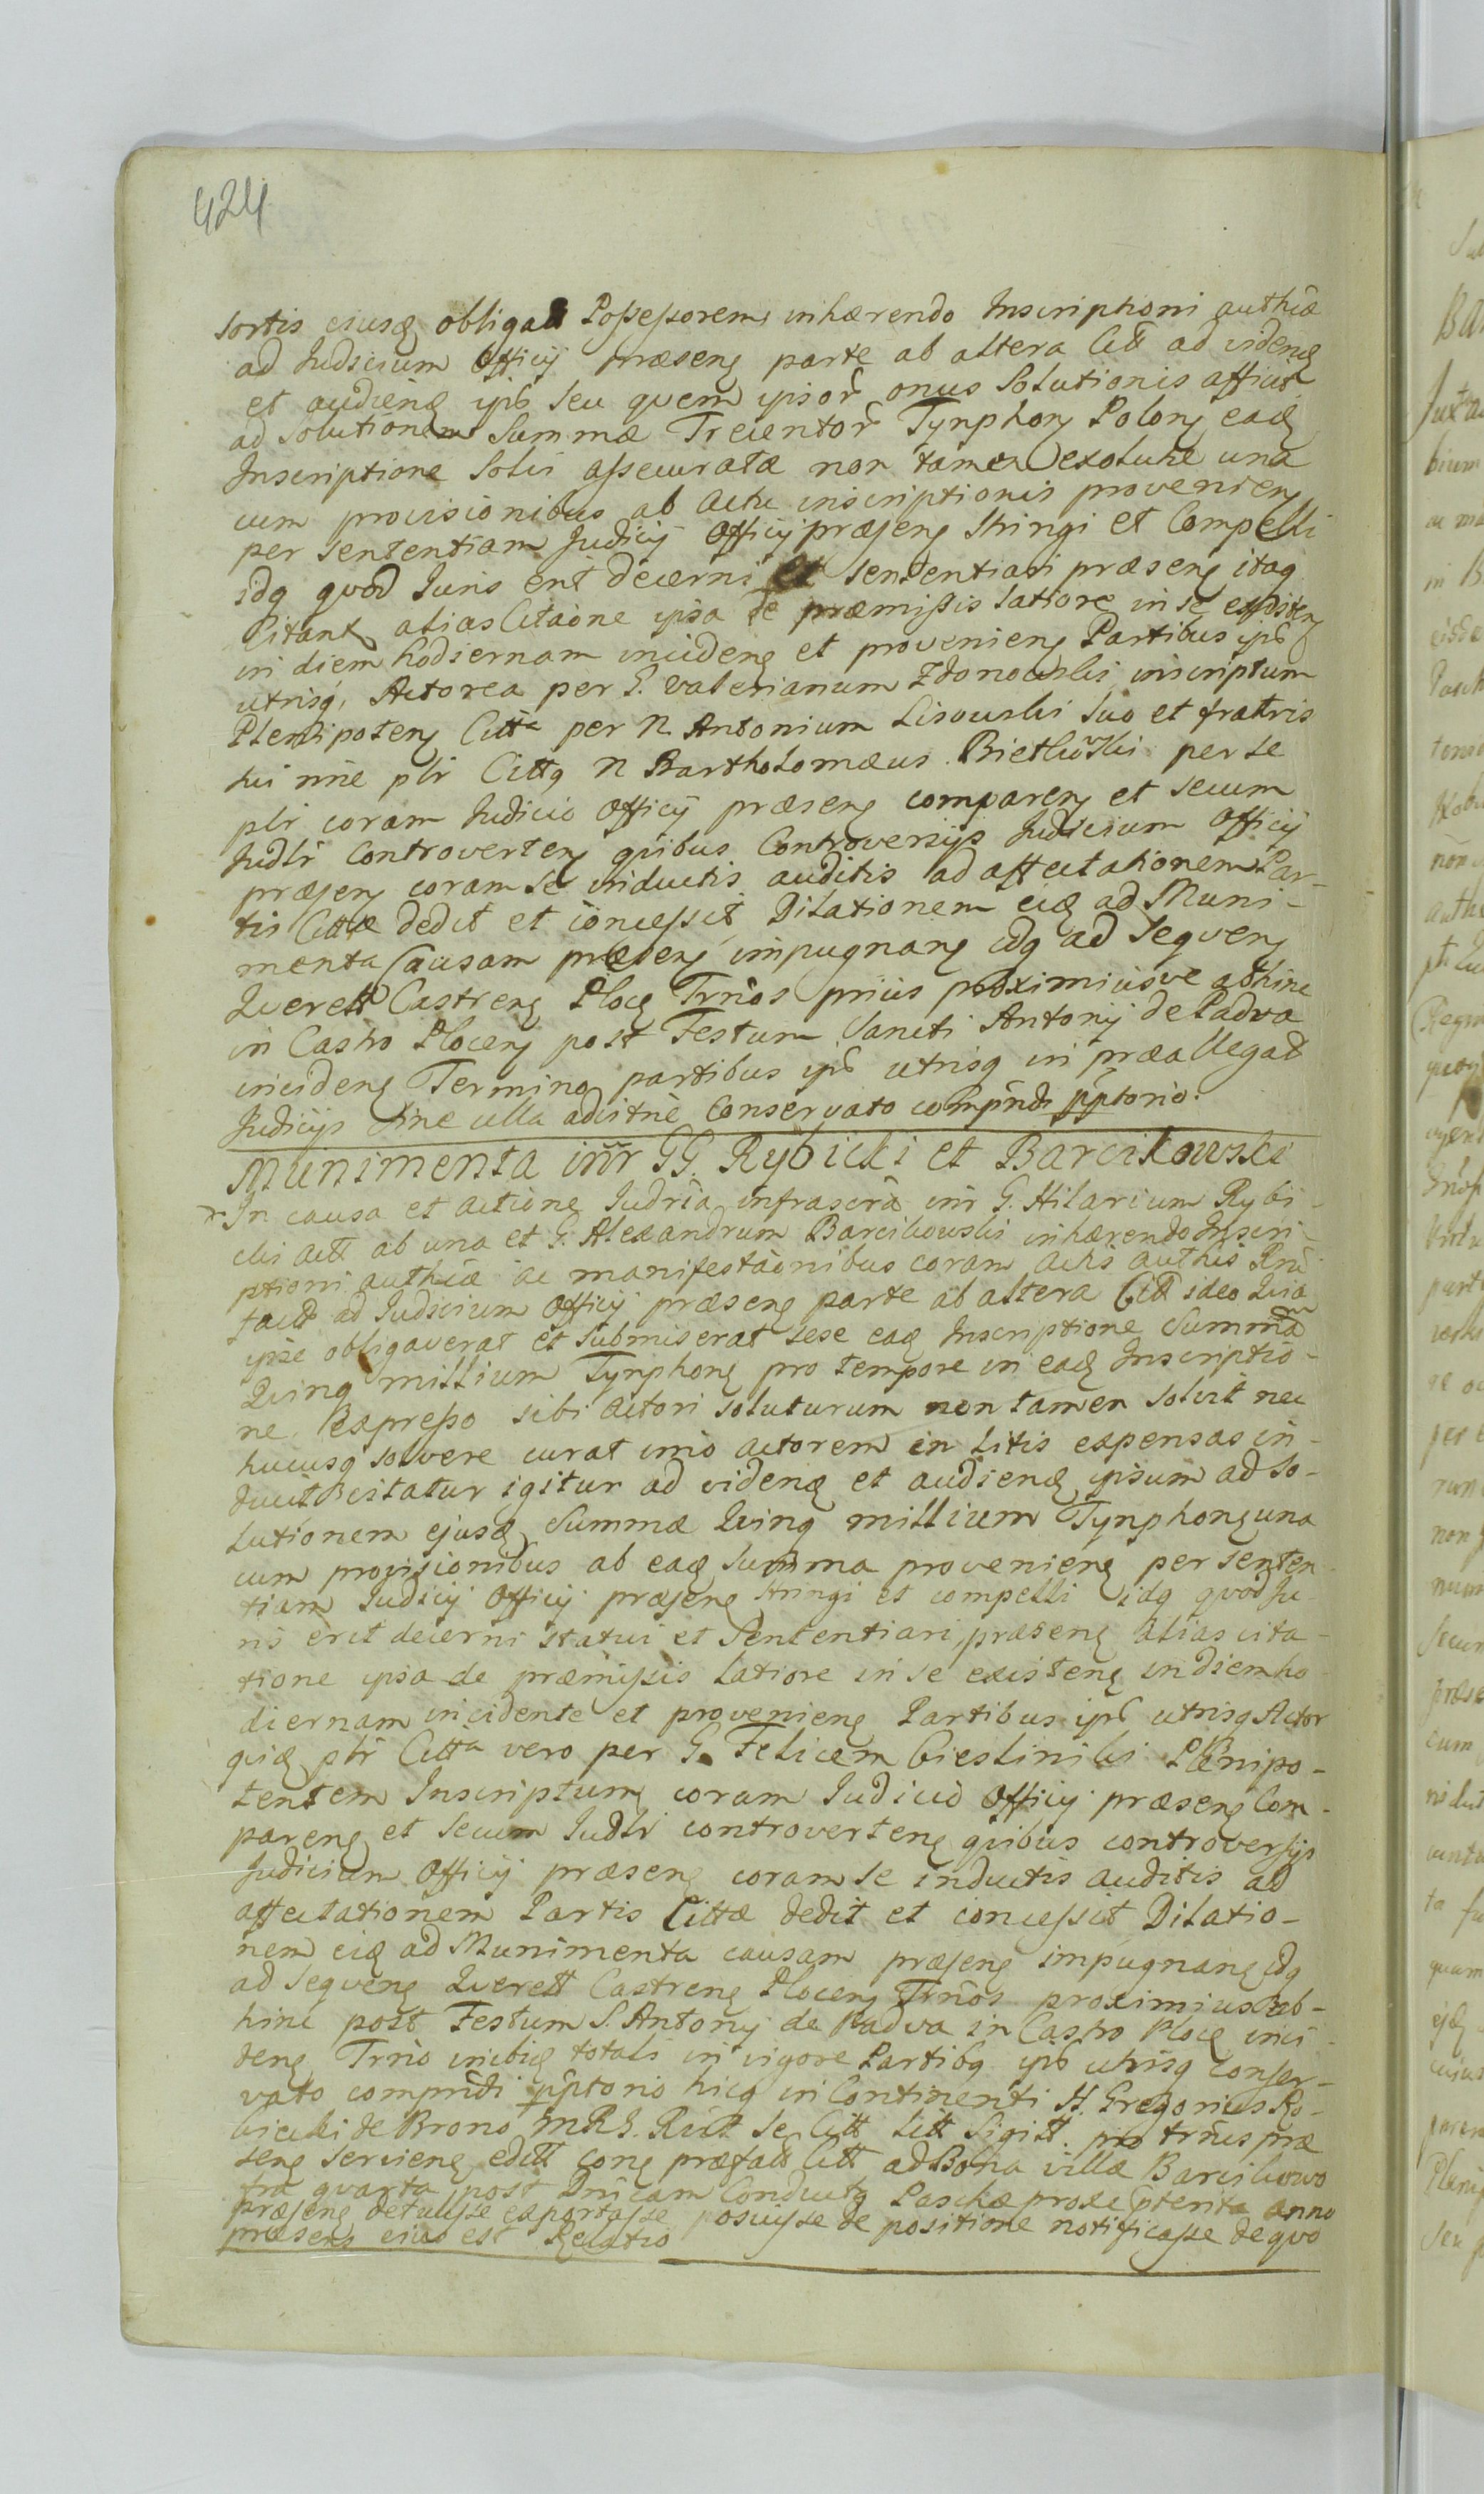 424
sortis eiusq obligatt Possessorem inhærendo Inscriptioni authcæ
ad Judicium Officij præseng parte ab altera Citt ad videnq
et audienq ipś seu quem ipsor̃ onus Solutionis afficit
ad Solutionem Summæ Trecentor̃ Tynphorg Polong eadq
Inscriptione Solvi assecuratæ non tamen exolutæ una
cum provisionibus ab actu inscriptionis provenieng
per Sententiam Judicij Officij præseng stringi et Compelli
idq quod Juris erit decerni et Sententiari præseng itaq
Citant alias Citãone ipsa de præmissis latiore in se existeng
in diem hodiernam incideng et provenieng Partibus ipś
utrisq, Actorea per G. Valerianum Zdonowski inscriptum
Plenipoteng Citta per N. Antonium Lisowski Suo et fratris
sui nñe plr Cittq N Bartholomæus Bietkowski per se
plr coram Judicio Officij præseng compareng et secum
Judlr Controverteng quibus Controversijs Judicium Officij
præseng coram Se inductis auditis ad affectationem Par-
tis Cittæ dedit et concessit Dilationem eidq ad Muni-
menta Causam præseng impugnang idq ad Sequeng
Querell Castreng Ploceng Trños prius proximiusve abhinc
in Castro Ploceng post Festum Sancti Antonij de Padva
incideng Termino partibus ipś utrisq in præallegat
Judicijs sine ulla adcitñe Conservato compñdi pptorio.
Munimenta iñr GG. Rybicki et Barcikowski
In causa et actione Judria infrascrã iñr G. Hilarium Rybi-
cki Act ab una et G. Alexandrum Barcikowski inhærendo Inscri-
ptioni authcæ ac manifestãonibus coram actis authis Rñi
fact ad Judicium Officij præseng parte ab altera Citt ideo Quia
ipse obligaverat et Submiserat sese eadq Inscriptione Summam
Quinq millium Tynphong pro tempore in eadq Inscriptio-
ne expresso sibi actori soluturum non tamen Solvit nec
hucusq solvere curat imo actorem in litis expensas in-
ducit Citatur igitur ad videnq et audienq ipsum ad So-
lutionem ejusq Summæ Quinq millium Tynphong una
cum provisionibus ab eadq Summa provenieng per senten-
tiam Judicij Officij præseng stringi et compelli idq quod Ju-
ris erit decerni statui et Sententiari, præseng alias cita-
tione ipsa de præmissis latiore in se existeng in diem ho-
diernam incidente et provenieng Partibus ipś utrisq Actor
quiq plr Citta vero per G. Felicem Cieslinski Plænipo-
tentem Inscriptum coram Judicio Officij præseng Com-
pareng et Secum Judlr controverteng quibus controversijs
Judicium Officij præseng coram se inductis auditis ad
affectationem Partis Cittæ dedit et concessit Dilatio-
nem eidq ad Munimenta causam præseng impugnang idq
ad Sequeng Querell Castreng Ploceng Trños proximius ab-
hinc post Festum S. Antonij de Padva in Castro Plocq inci-
deng Trño in totali in vigore Partibq ipś utrisq Conser-
vato compñdi pptorio hicq in Continenti H. Gregorius Ro-
cicki de Brono MRG. Rcit Se Citt Litt Sigitt pro trñis præ
seng servieng editt cong præfatt Citt ad Bona villæ Barcikowo
fra quarta post Dnicam Conductq Paschæ proxe pterita anno
præseng detulisse exportasse posuisse de positione notificasse de quo
præsens eius est Relatio